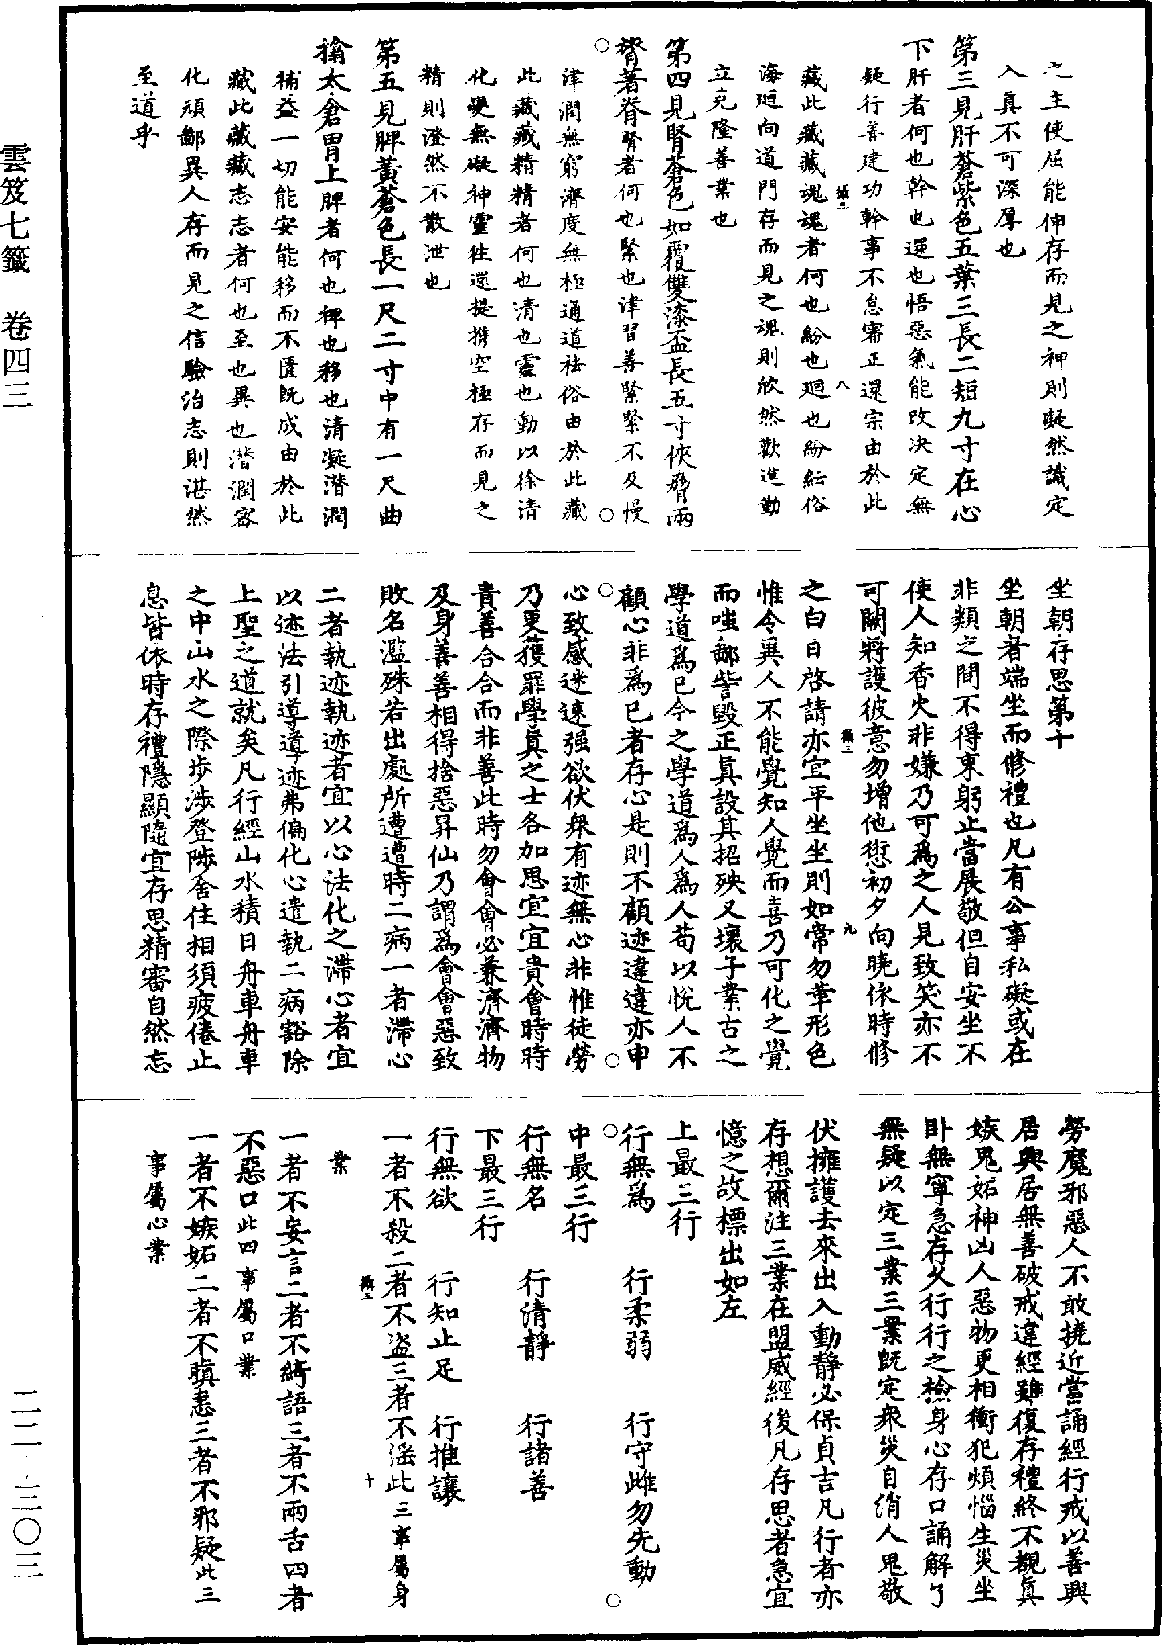 雲笈七籤　卷四三
之主使屈能伸存而見之神則凝然識定
入真不可深厚也
第三見肝蒼紫色五葉三長二短九寸在心
下肝者何也幹也還也悟惡氣能改決定無
疑行善建功幹事不怠審正還宗由於此
藏此藏藏魂魂者何也紛也廻也紛紜俗
海廻向道門存而見之魂則欣然歡進勤
立克隆善業也
第四見腎蒼色如覆雙漆盃長五寸俠脅兩
膂著脊腎者何也緊也津習善緊緊不及慢
津潤無窮濟度無極通道袪俗由於此藏
此藏藏精精者何也清也靈也動以徐清
化變無礙神靈往還提携空極存而見之
精則澄然不散泄也
第五見脾黃蒼色長一尺二寸中有一尺曲
揜太倉胃上脾者何也裨也移也清凝潛潤
補益一切能安能移而不匱既成由於此
藏此藏藏志志者何也至也異也潛潤容
化頑鄙異人存而見之信驗治志則湛然
至道乎
坐朝存思第十
坐朝者端坐而修禮也凡有公事私礙或在
非類之間不得束躬止當展敬但自安坐不
使人知香火非嫌乃可為之人見致笑亦不
可闕將護彼意勿增他愆初夕向曉依時修
之白日啓請亦宜平坐坐則如常勿華形色
惟令異人不能覺知人覺而喜乃可化之覺
而嗤鄙呰毀正真設其招殃又壞子業古之
學道爲己今之學道爲人爲人苟以悅人不
顧心非為已者存心是則不顧迹違違亦申
心致感迷速强欲伏衆有迹無心非惟徒勞
乃更獲罪學真之士各加思宜宜貴會時時
貴善合合而非善此時勿會會必兼濟濟物
及身善善相得捨惡昇仙乃謂為會會惡致
敗名濫殊若出處所遭遭時二病一者滯心
二者執迹執迹者宜以心法化之滯心者宜
以迹法引導導迹弗偏化心遣執二病豁除
上聖之道就矣凡行經山水積日舟車舟車
之中山水之際步涉登陟舍住相須疲倦止
息皆依時存禮隱顯隨宜存思精審自然忘
勞魔邪惡人不敢撓近當誦經行戒以善興
居興居無善破戒違經雖復存禮終不覩真
嫉鬼妬神凶人惡物更相衝犯煩惱生災坐
卧無寧急存火行行之檢身心存口誦解了
無疑以定三業三業既定衆災自消人鬼敬
伏擁護去來出入動靜必保貞吉凡行者亦
存想爾注三業在盟威經後凡存思者急宜
憶之故標出如左
上最三行
行無爲　行柔弱　行守雌勿先動
中最三行
行無名　行清靜　行諸善
下最三行
行無欲　行知止足　行推讓
一者不殺二者不盜三者不淫此三事屬身
業
一者不妄言二者不綺語三者不兩舌四者
不惡口此四事屬口業
一者不嫉妬二者不瞋恚三者不邪疑此三
事屬心業
二二·三〇三